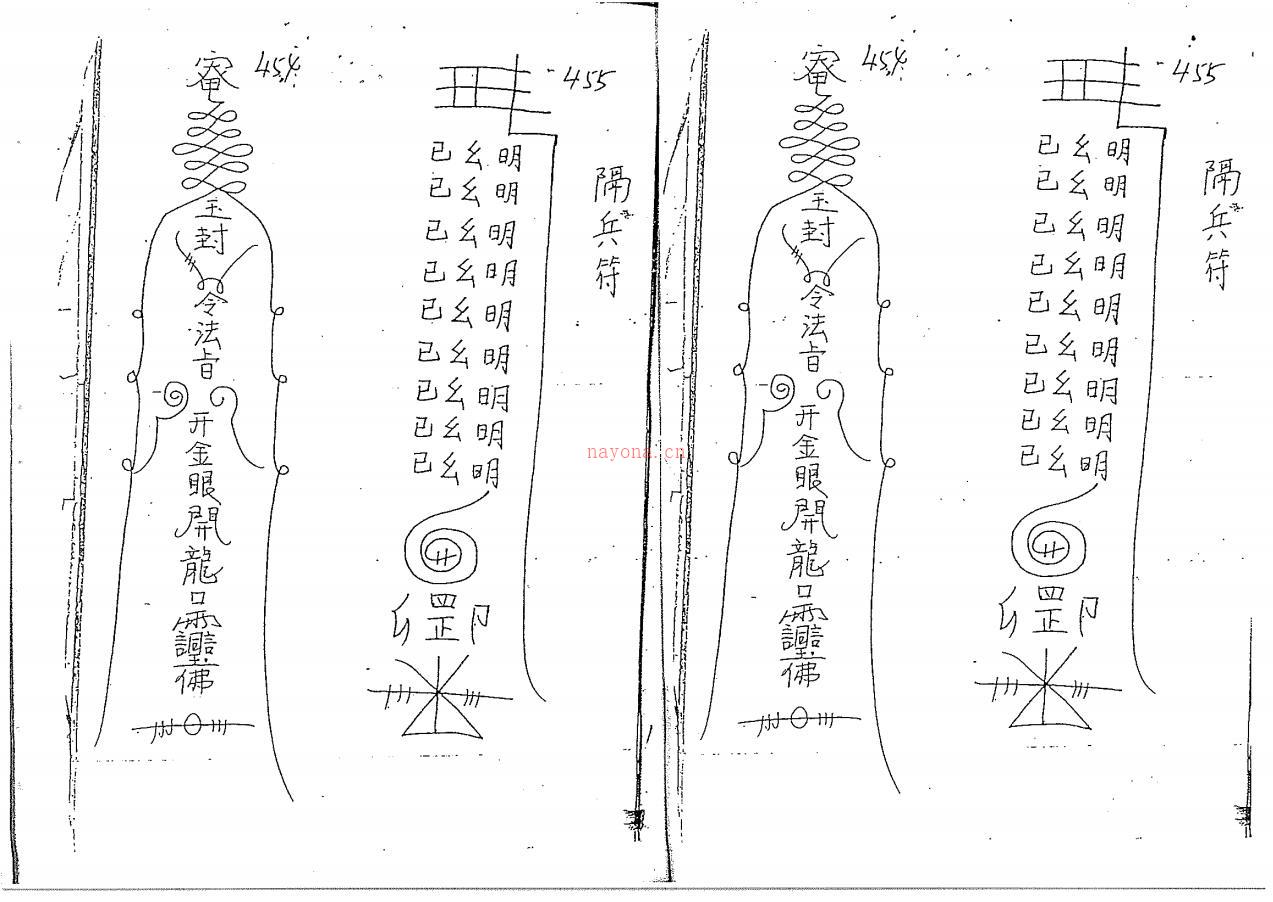 454
玉
封
令
法
旨
开
金
眼
開
龍
口
靈
佛
455
隔
兵
符
已幺明
已幺明
已幺明
已幺明
已幺明
已幺明
已幺明
已幺明
已幺明
罡
nayona.cn
454
玉
封
令
法
旨
开
金
眼
開
龍
口
靈
佛
455
隔
兵
符
已幺明
已幺明
已幺明
已幺明
已幺明
已幺明
已幺明
已幺明
已幺明
罡